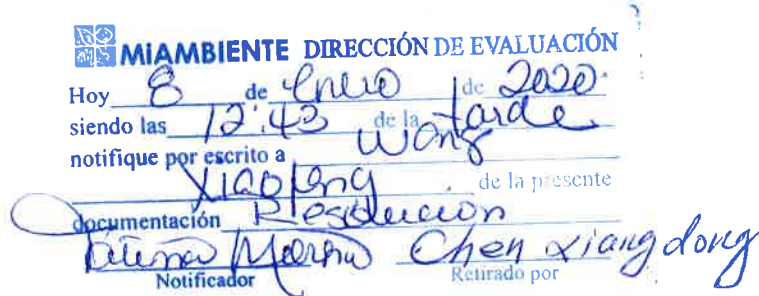 MiAMBIENTE DIRECCIÓN DE EVALUACIÓN
Hoy 8 de Enero de 2020
siendo las 12:43 de la tarde
notifique por escrito a Wong
Xiaofeng de la presente
documentación Resolución
Chen xiang dong
Notificador Retirado por